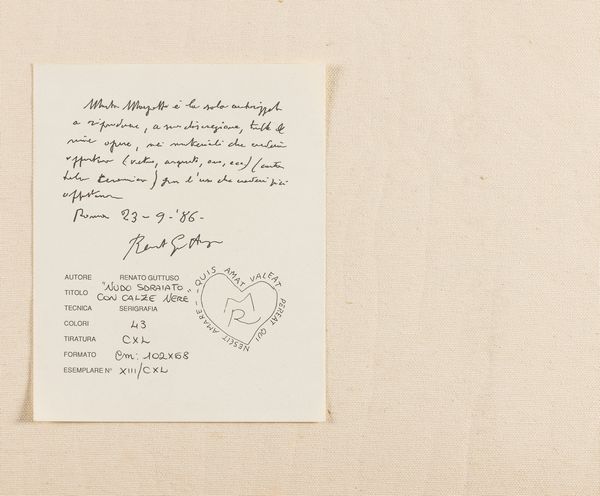 Marta Marzotto è la sola autorizzat
a riprodurre, a sua discrezione, tutte le
mie opere, nei materiali che crederà
opportuno (vetro, argento, oro, ecc) (carta
tela ceramica) per l'uso che crederà più
opportuno
Roma 23-9-'86-
Renato Guttuso
AUTORE RENATO GUTTUSO
TITOLO "NUDO SDRAIATO
CON CALZE NERE"
TECNICA SERIGRAFIA
COLORI 43
TIRATURA CXL
FORMATO Cm: 102x68
ESEMPLARE N° XIII/CXL
QUIS AMAT VALEAT PEREAT QUI NESCIT AMARE
MR